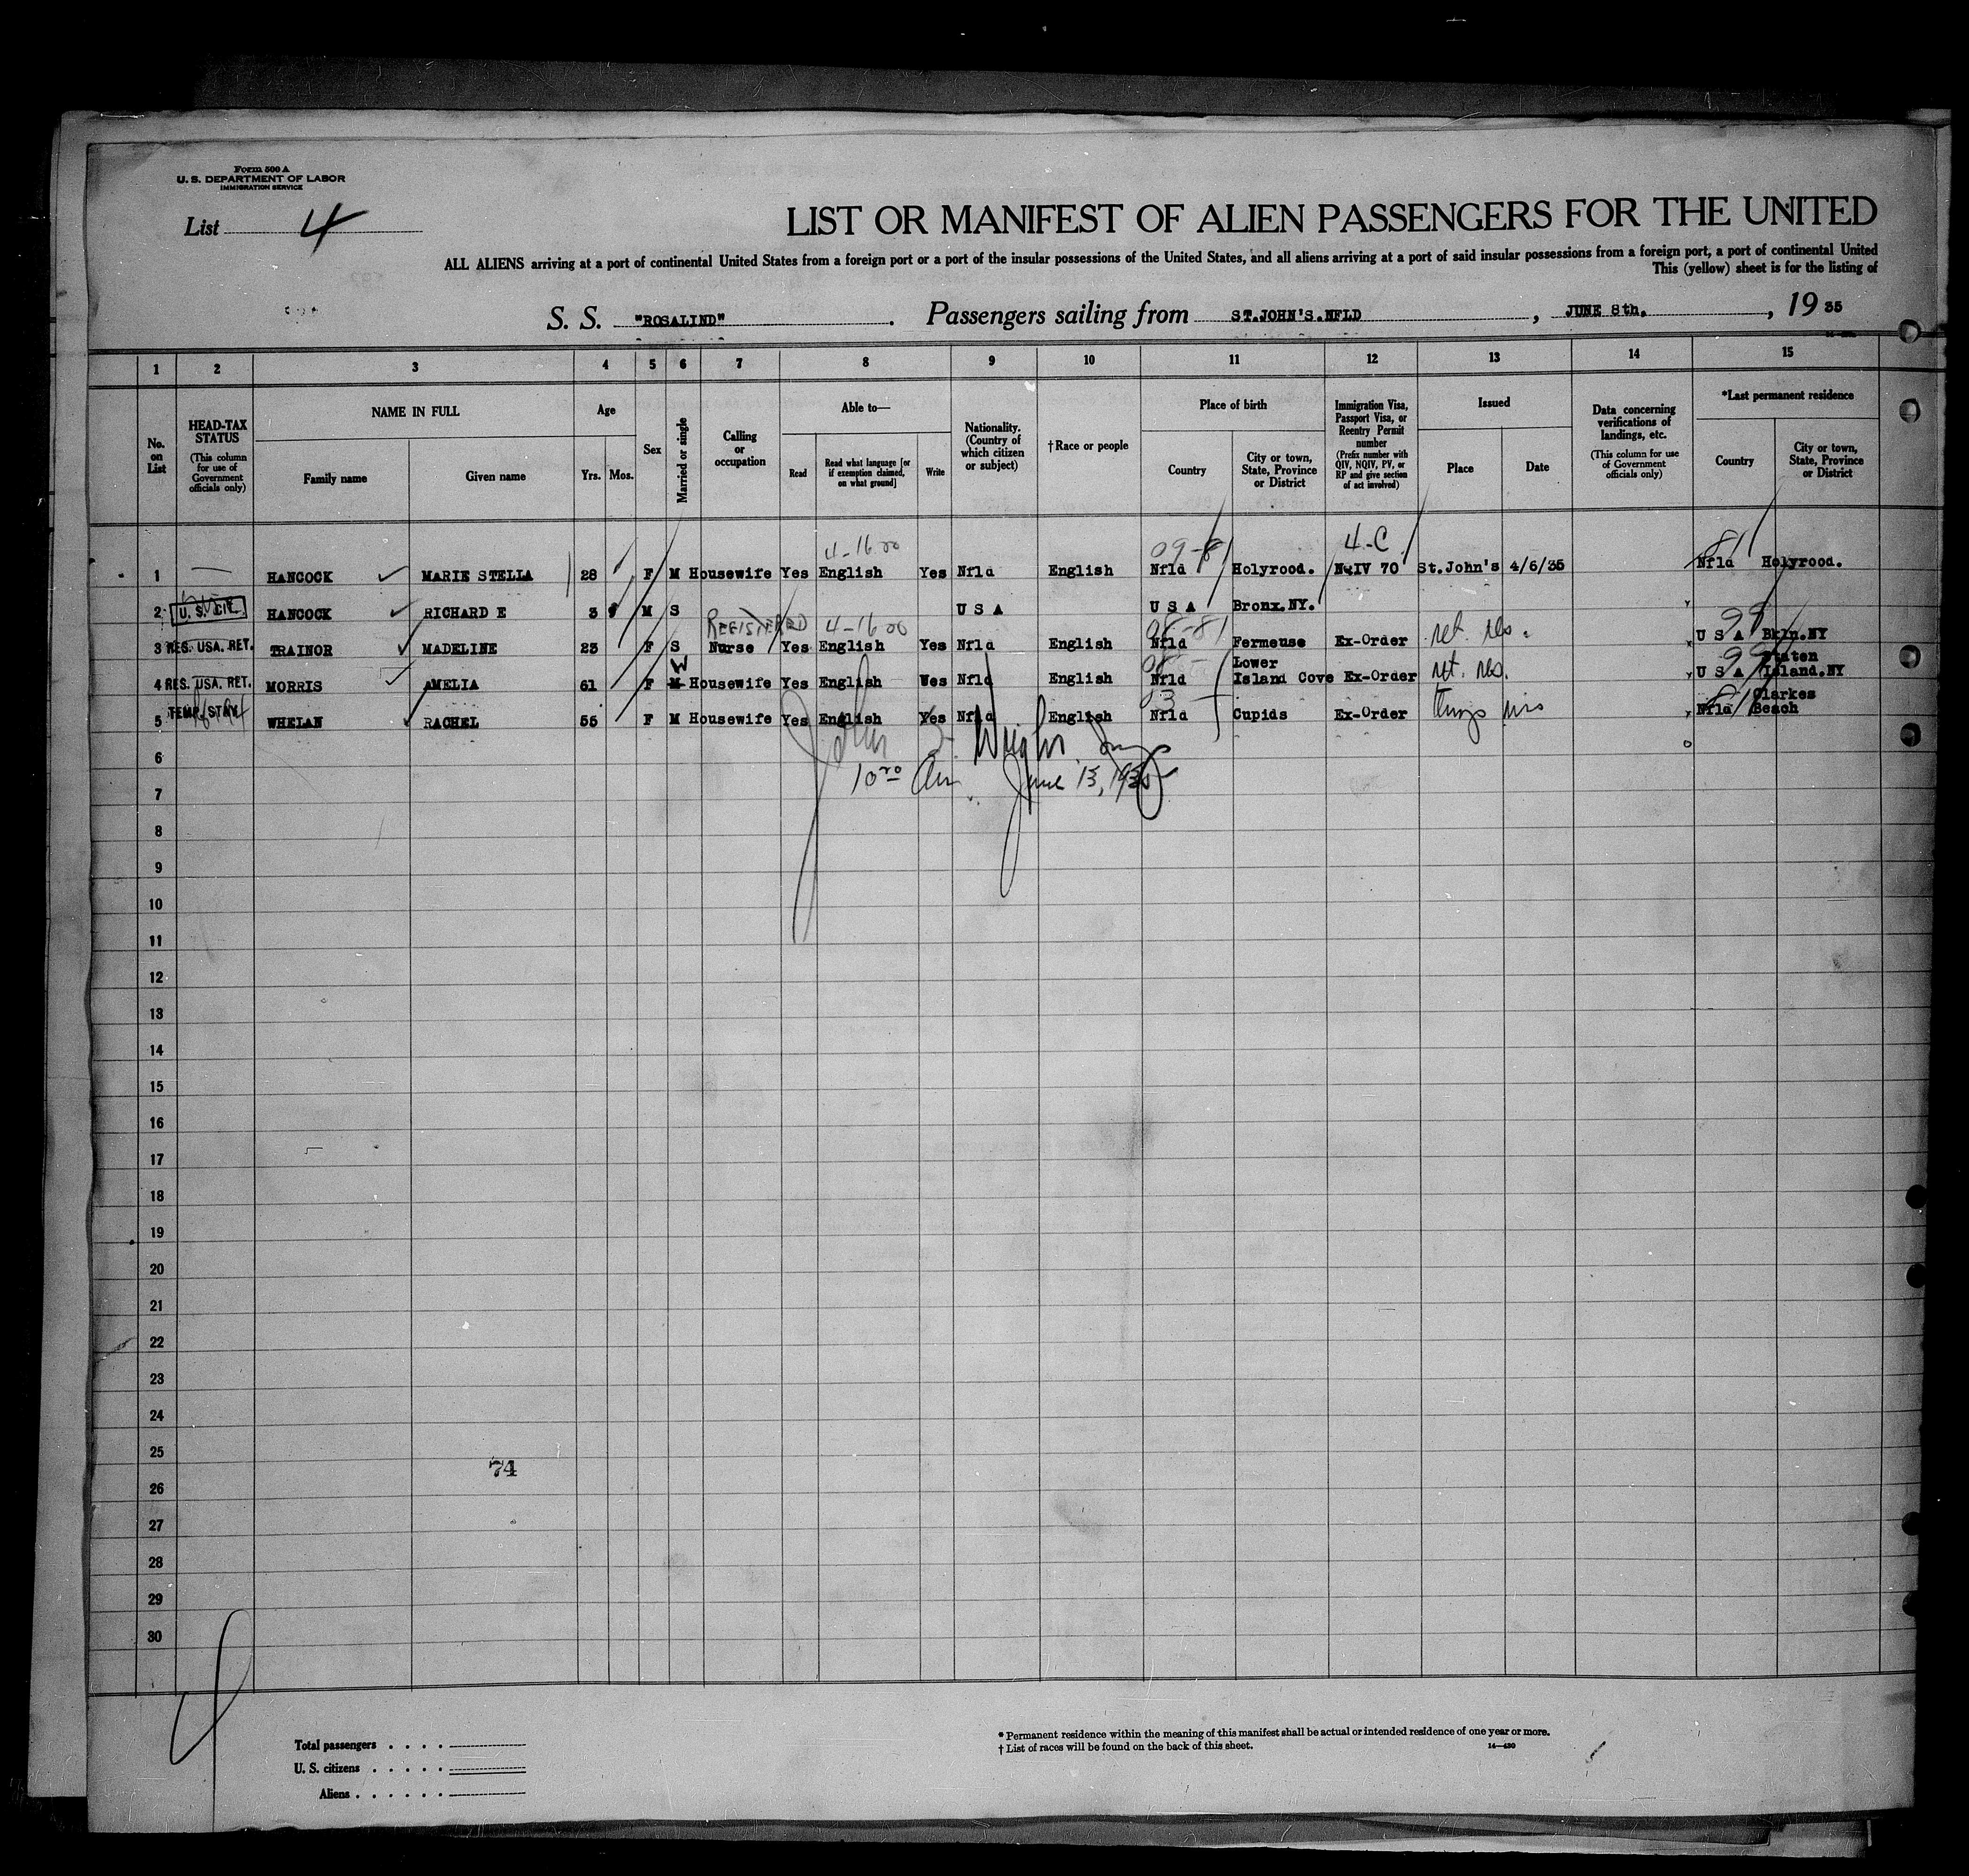 Form 500 A
U. S. DEPARTMENT OF LABOR
IMMIGRATION SERVICE
List 4
LIST OR MANIFEST OF ALIEN PASSENGERS FOR THE UNITED
ALL ALIENS arriving at a port of continental United States from a foreign port or a port of the insular possessions of the United States, and all aliens arriving at a port of said insular possessions from a foreign port, a port of continental United
This (yellow) sheet is for the listing of
S. S. "ROSALIND" . Passengers sailing from ST.JOHN'S.NFLD , JUNE 8th. , 19 35
1 2 3 4 5 6 7 8 9 10 11 12 13 14 15
No. on List
HEAD-TAX STATUS (This column for use of Government officials only)
NAME IN FULL
Family name Given name
Age
Yrs. Mos.
Sex
Married or single
Calling or occupation
Able to—
Read Read what language [or if exemption claimed, on what ground] Write
Nationality. (Country of which citizen or subject)
† Race or people
Place of birth
Country City or town, State, Province or District
Immigration Visa, Passport Visa, or Reentry Permit number (Prefix number with QIV, NQIV, PV, or RP and give section of act involved)
Issued
Place Date
Data concerning verifications of landings, etc. (This column for use of Government officials only)
*Last permanent residence
Country City or town, State, Province or District
4-16 00 09-81 4-C 81
1 HANCOCK MARIE STELLA 28 F M Housewife Yes English Yes Nfld English Nfld Holyrood. NQIV 70 St.John's 4/6/35 Nfld Holyrood.
2 U. S. CIT. HANCOCK RICHARD E 3 M S U S A U S A Bronx.NY.
REGISTERED 4-16 00 08-81 99
3 RES. USA. RET. TRAINOR MADELINE 23 F S Nurse Yes English Yes Nfld English Nfld Fermeuse Ex-Order ret. res. U S A Bkln.NY
W 08 Lower 99 Staten
4 RES. USA. RET. MORRIS AMELIA 61 F M Housewife Yes English Wes Nfld English Nfld Island Cove Ex-Order ret. res. U S A Island.NY
TEMP. STAY 03 81 Clarkes
5 WHELAN RACHEL 55 F M Housewife Yes English Yes Nfld English Nfld Cupids Ex-Order Nfld Beach
6
10 00 Am June 13, 1935
7
8
9
10
11
12
13
14
15
16
17
18
19
20
21
22
23
24
25
74
26
27
28
29
30
Total passengers
U. S. citizens
Aliens
* Permanent residence within the meaning of this manifest shall be actual or intended residence of one year or more.
† List of races will be found on the back of this sheet.
14—430